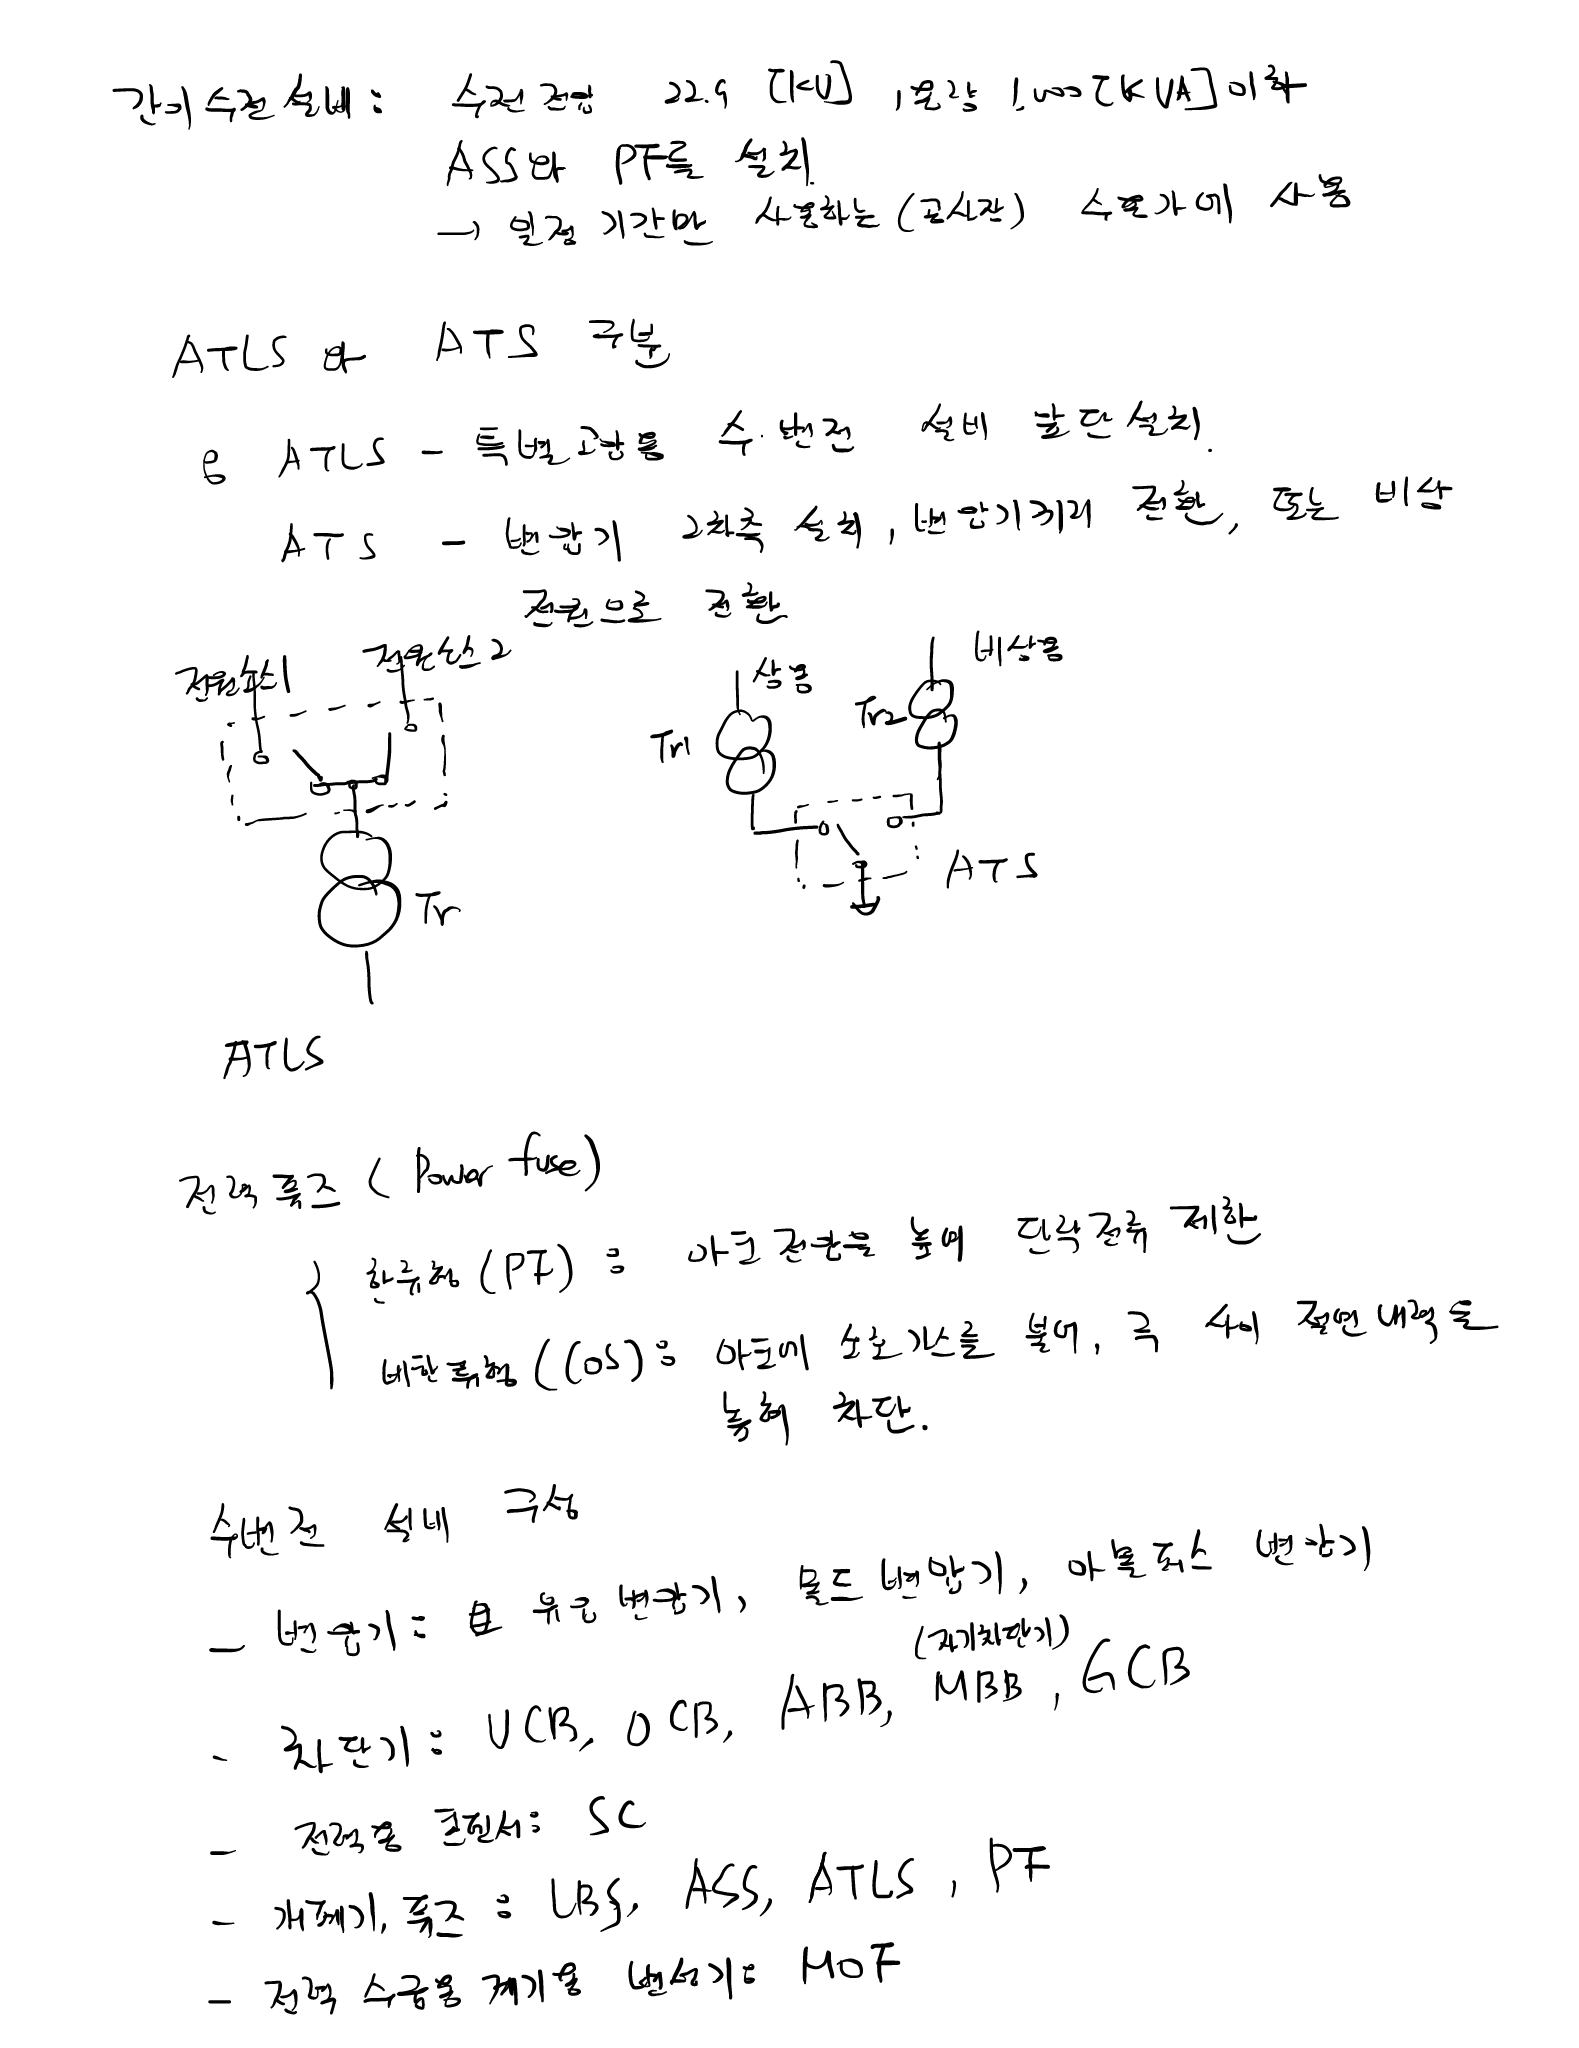 간이 수전 설비 : 수전 전압 22.9 [kV], 용량 1,000 [kVA] 이하
ASS와 PF를 설치.
→ 일정 기간만 사용하는 (공사장) 수용가에 사용
ATLS 와 ATS 구분
ATLS - 특별고압용 수·변전 설비 말단 설치.
ATS - 변압기 2차측 설치, 변압기끼리 전환, 또는 비상
전원으로 전환
전원소스1 전원소스2
상용 비상용
Tr1 Tr2
ATS
Tr
ATLS
전력퓨즈 (Power fuse)
한류형 (PF) : 아크 전압을 높여 단락전류 제한
비한류형 (COS) : 아크에 소호가스를 불어, 극 사이 절연내력을
높혀 차단.
수변전 설비 구성
- 변압기 : 유입변압기, 몰드변압기, 아몰퍼스 변압기
(자기차단기)
- 차단기 : VCB, OCB, ABB, MBB, GCB
- 전력용 콘덴서 : SC
- 개폐기, 퓨즈 : LBS, ASS, ATLS, PF
- 전력 수급용 계기용 변성기 : MOF